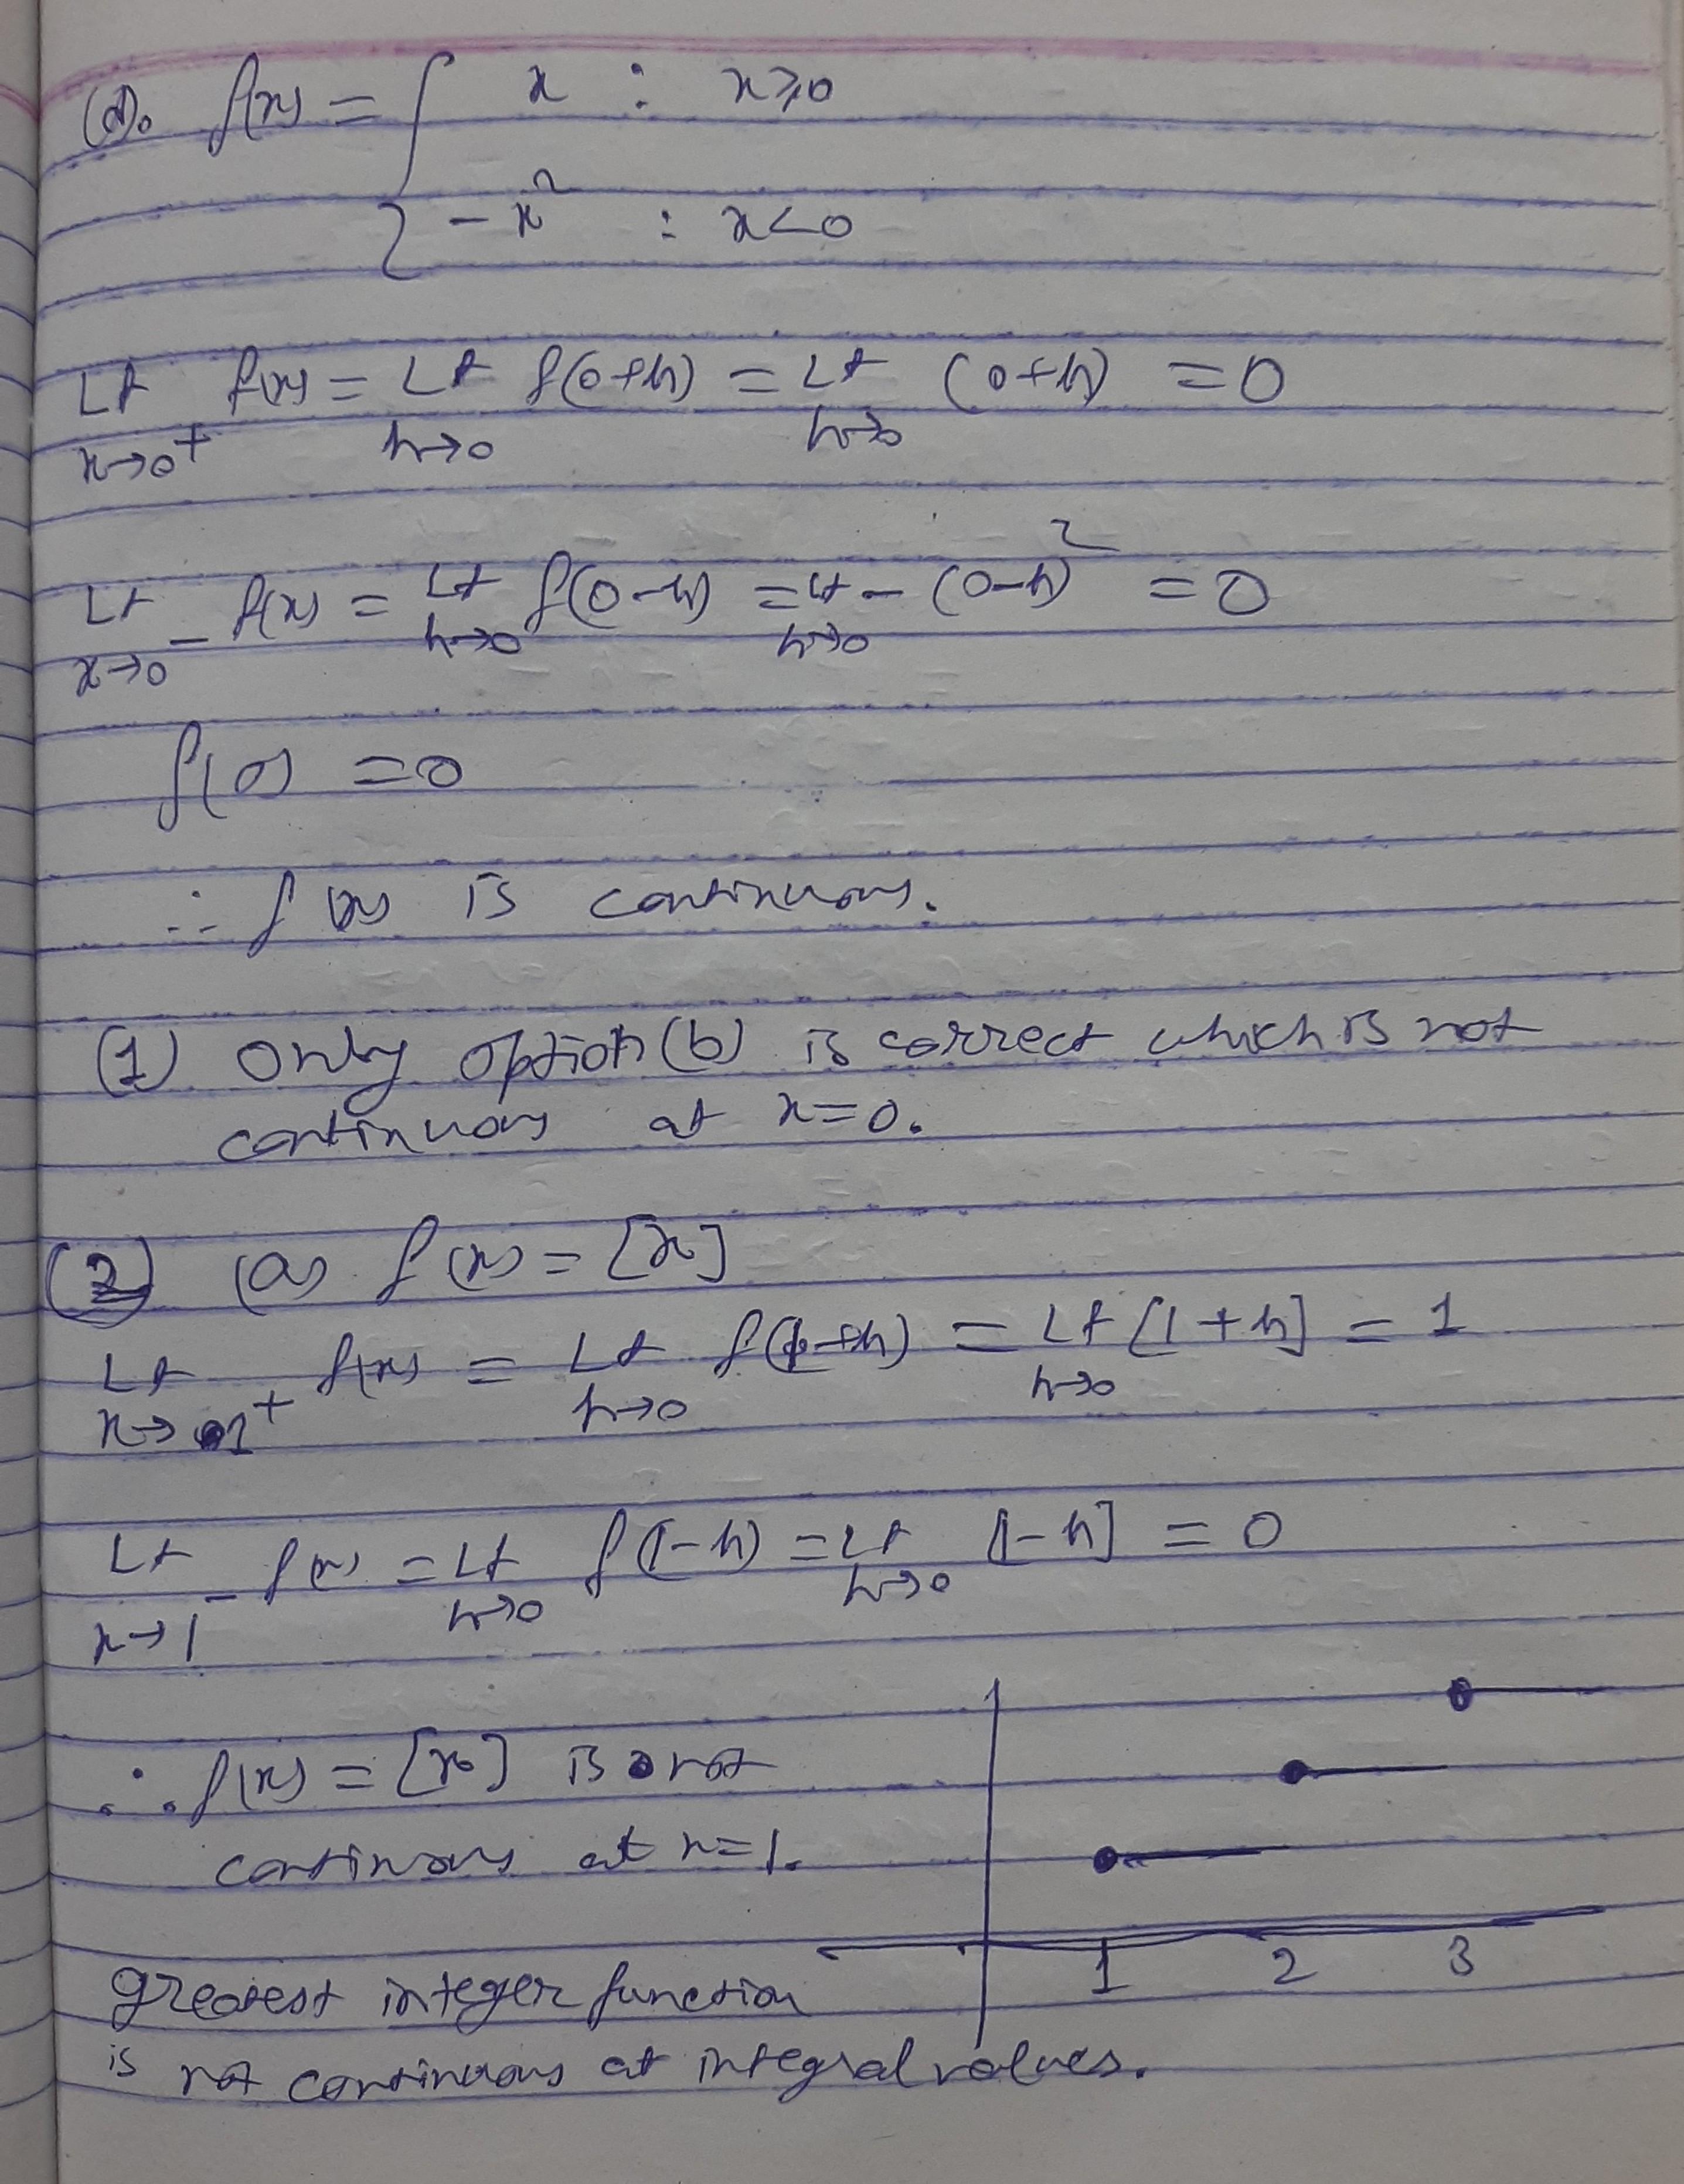 (d). f(x) = { x : x ⩾ 0
{ -x² : x < 0
Lt x→0⁺ f(x) = Lt h→0 f(0+h) = Lt h→0 (0+h) = 0
Lt x→0⁻ f(x) = Lt h→0 f(0-h) = Lt h→0 -(0-h)² = 0
f(0) = 0
∴ f(x) is continuous.
(1) Only option (b) is correct which is not
continuous at x=0.
(2) (a) f(x) = [x]
Lt x→1⁺ f(x) = Lt h→0 f(1+h) = Lt h→0 [1+h] = 1
Lt x→1⁻ f(x) = Lt h→0 f(1-h) = Lt h→0 [1-h] = 0
∴ f(x) = [x] is not
continuous at x=1.
1 2 3
greatest integer function
is not continuous at integral values.